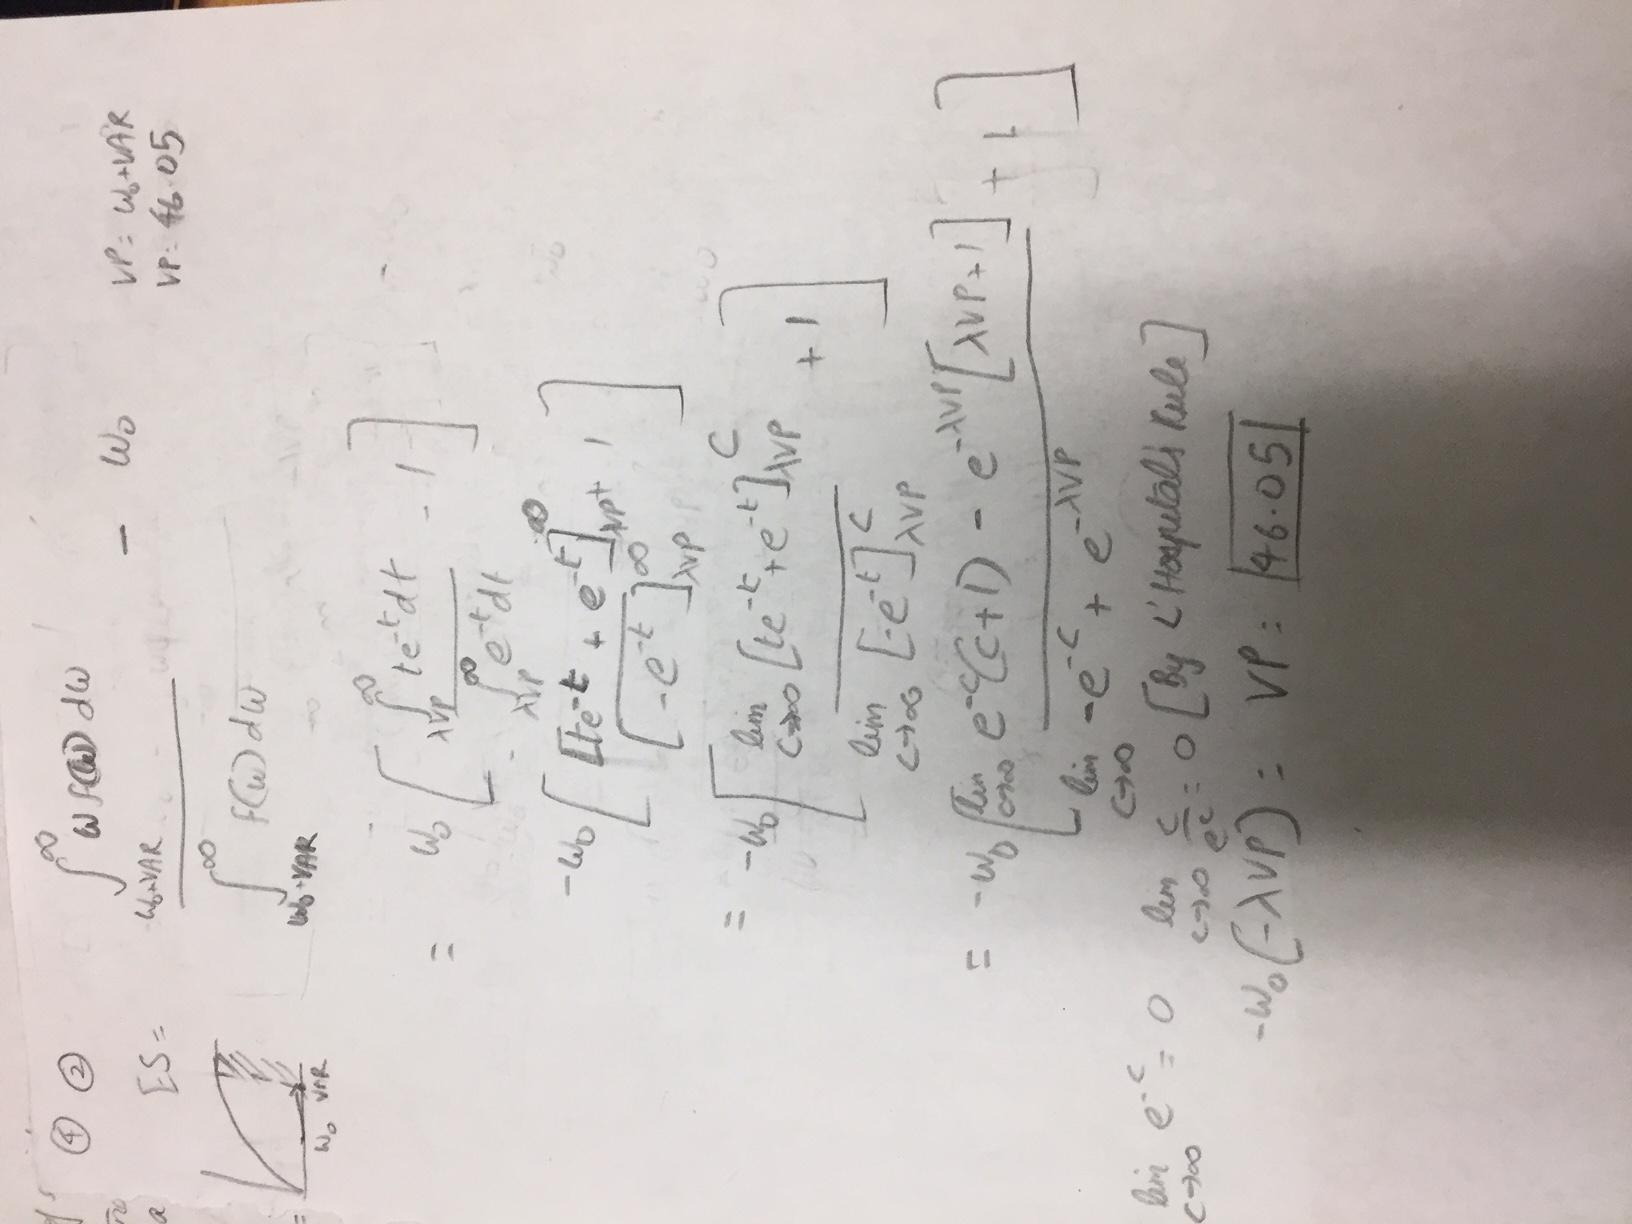 ④ ②
ES = ∫_{W₀+VAR}^{∞} ω f(ω) dω / ∫_{W₀+VAR}^{∞} f(ω) dω − W₀
VP = W₀+VAR
VP = 46.05
W₀ VAR
= W₀ [ ∫_{λVP}^{∞} te^{-t} dt / ∫_{λVP}^{∞} e^{-t} dt − 1 ]
-W₀ [ [te^{-t} + e^{-t}]_{λVP}^{∞} / [-e^{-t}]_{λVP}^{∞} + 1 ]
= -W₀ [ lim_{C→∞} [te^{-t} + e^{-t}]_{λVP}^{C} / lim_{C→∞} [-e^{-t}]_{λVP}^{C} + 1 ]
= -W₀ [ lim_{C→∞} e^{-C}(C+1) - e^{-λVP}[λVP+1] / lim_{C→∞} -e^{-C} + e^{-λVP} + 1 ]
lim_{C→∞} e^{-C} = 0 lim_{C→∞} C/e^{C} = 0 [By L'Hospital's Rule]
-W₀(-λVP) = VP = 46.05